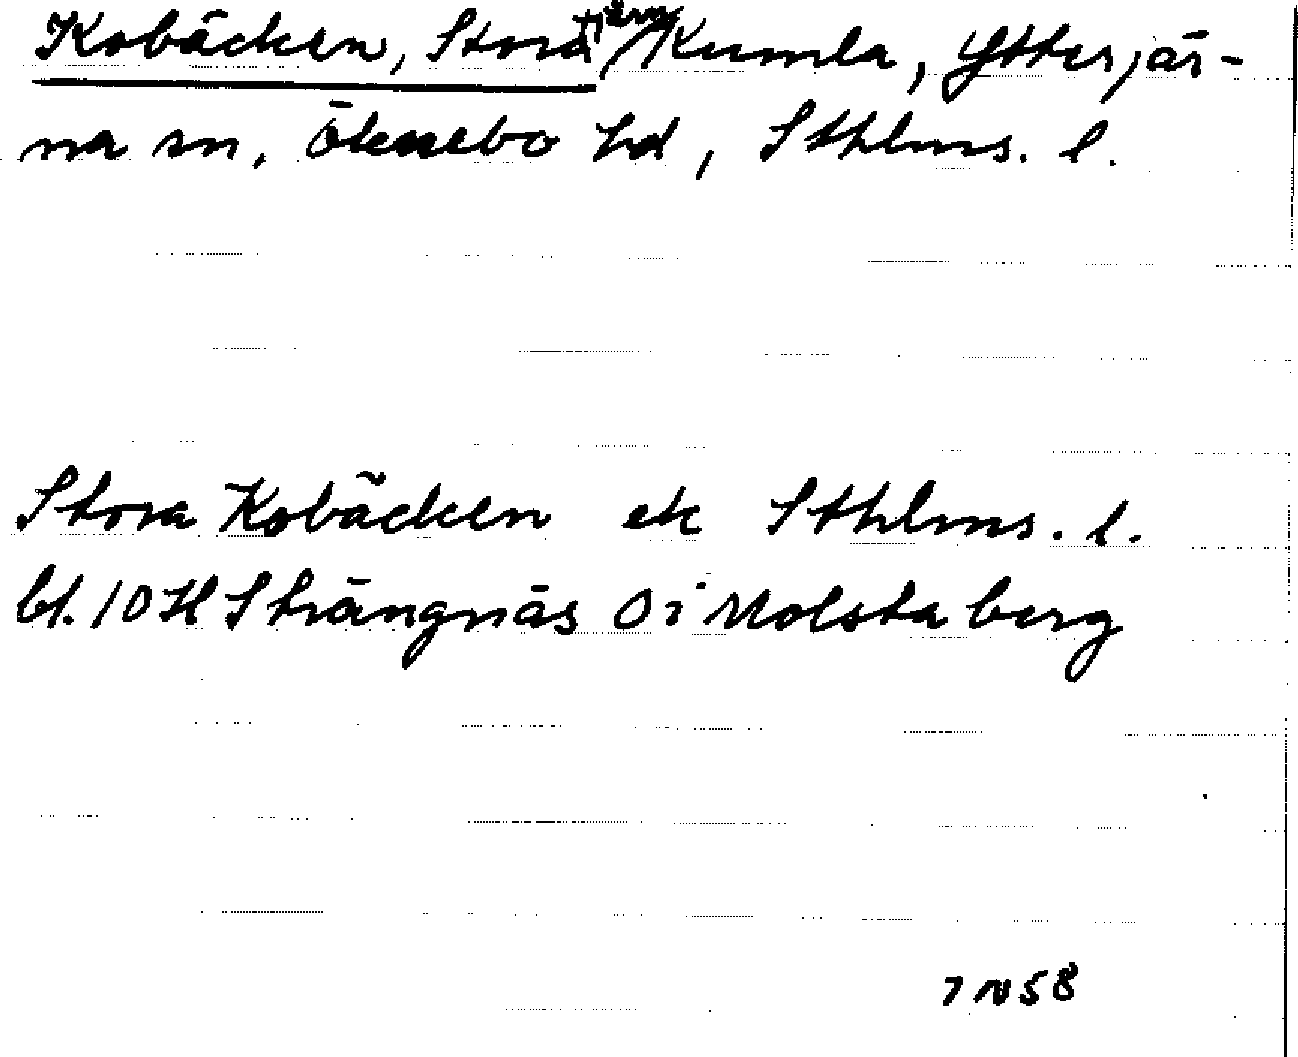 Kobäcken, Stora, Kumla, Ytterjär-
na sn, Öknebo hd, Sthlms. l.
Stora Kobäcken ek Sthlms. l.
bl. 10H Strängnäs Oi Molstaberg
7 N 58